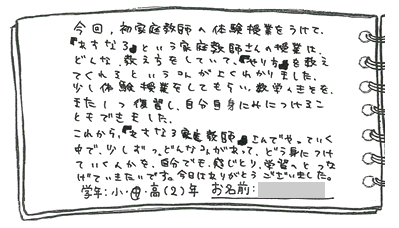 今回、初家庭教師の体験授業をうけて、
『あすなろ』という家庭教師さんの授業は、
どんな、教え方をしていて、『やり方』を教え
てくれるという が よくわかりました。
少し体験授業をしてもらい、数学 を、
また1つ復習し、自分自身にみにつけるこ
ともできました。
これから、『あすなろ家庭教師』さんでやっていく
中で、少しずつ、どんな があって、どう身につけ
ていくんかを、自分でも、感じとり、学習へとつな
げていきたいです。今日はありがとうございました。
学年:小・中・高(2)年 お名前: